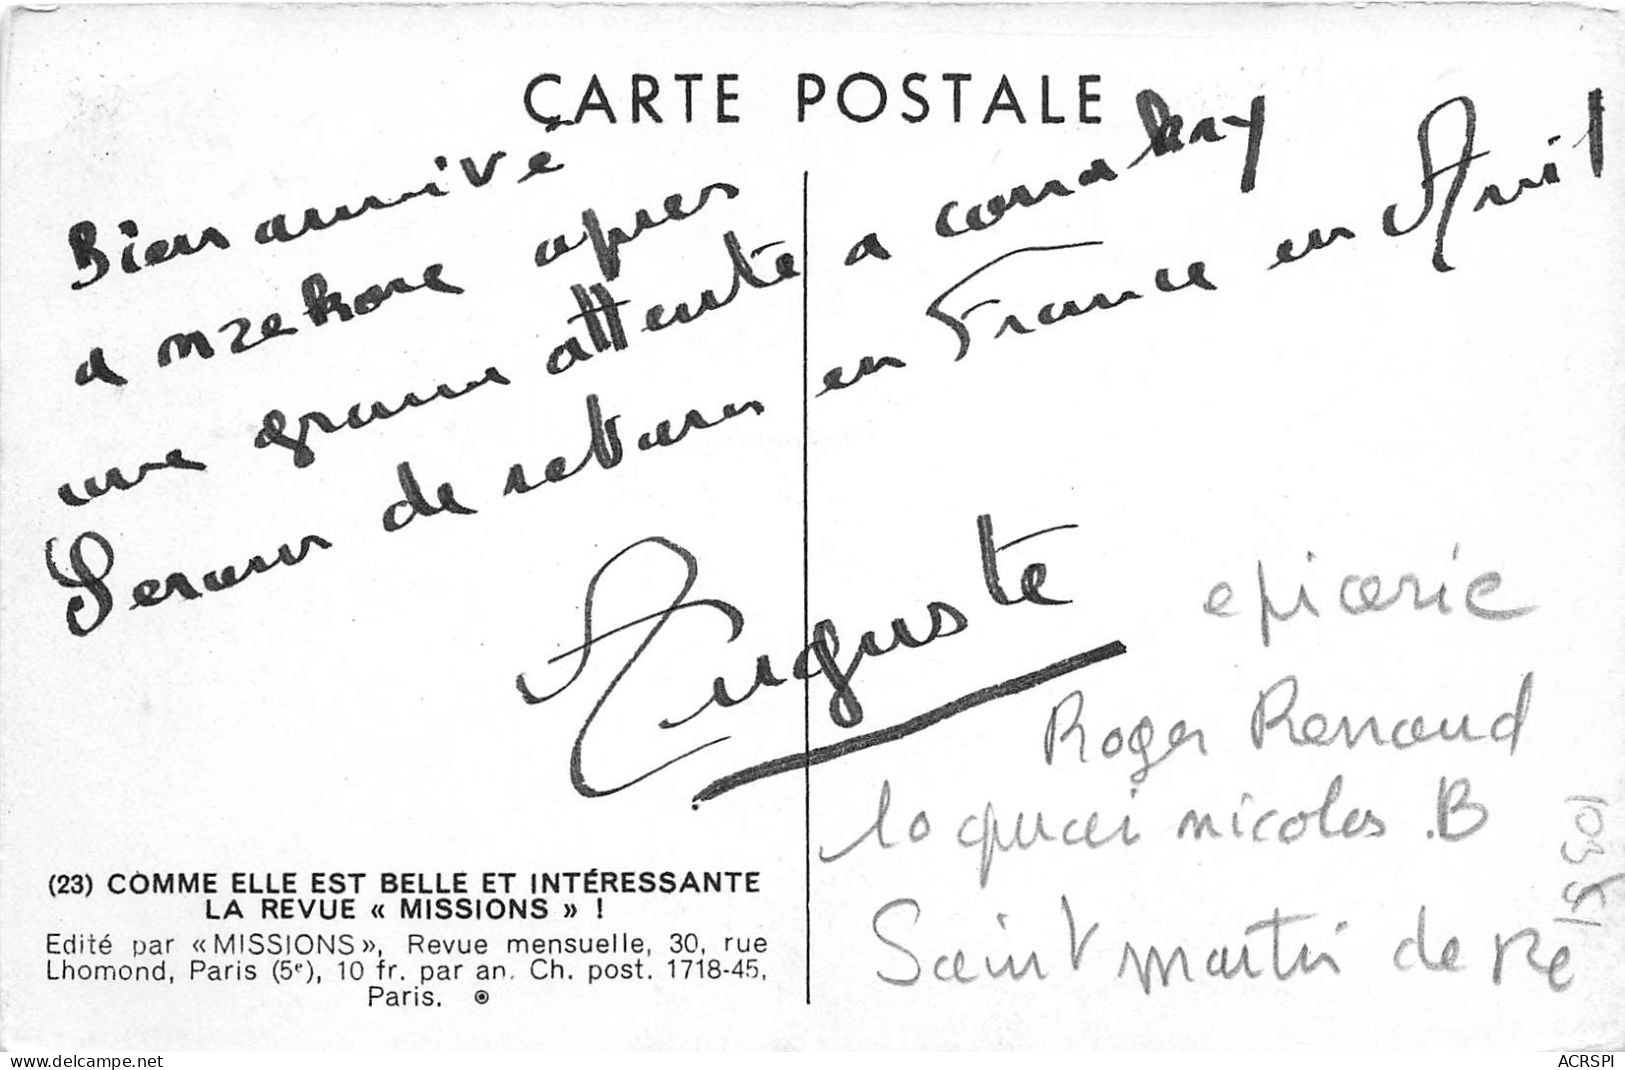 CARTE POSTALE
Bien arrivé
a nzekore apres
une grande attente a conakry
Serons de retour en France en Avril
Auguste
epicerie
Roger Renaud
10 quai nicolas .B
Saint martin de Re
(23) COMME ELLE EST BELLE ET INTÉRESSANTE
LA REVUE « MISSIONS » !
Edité par «MISSIONS», Revue mensuelle, 30, rue
Lhomond, Paris (5e), 10 fr. par an. Ch. post. 1718-45,
Paris.
delcampe.net
ACRSPI